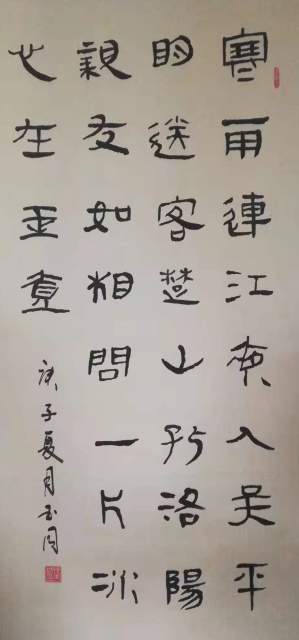 寒雨連江夜入吴平
明送客楚山孤洛陽
親友如相問一片冰
心在玉壺
庚子夏月玉